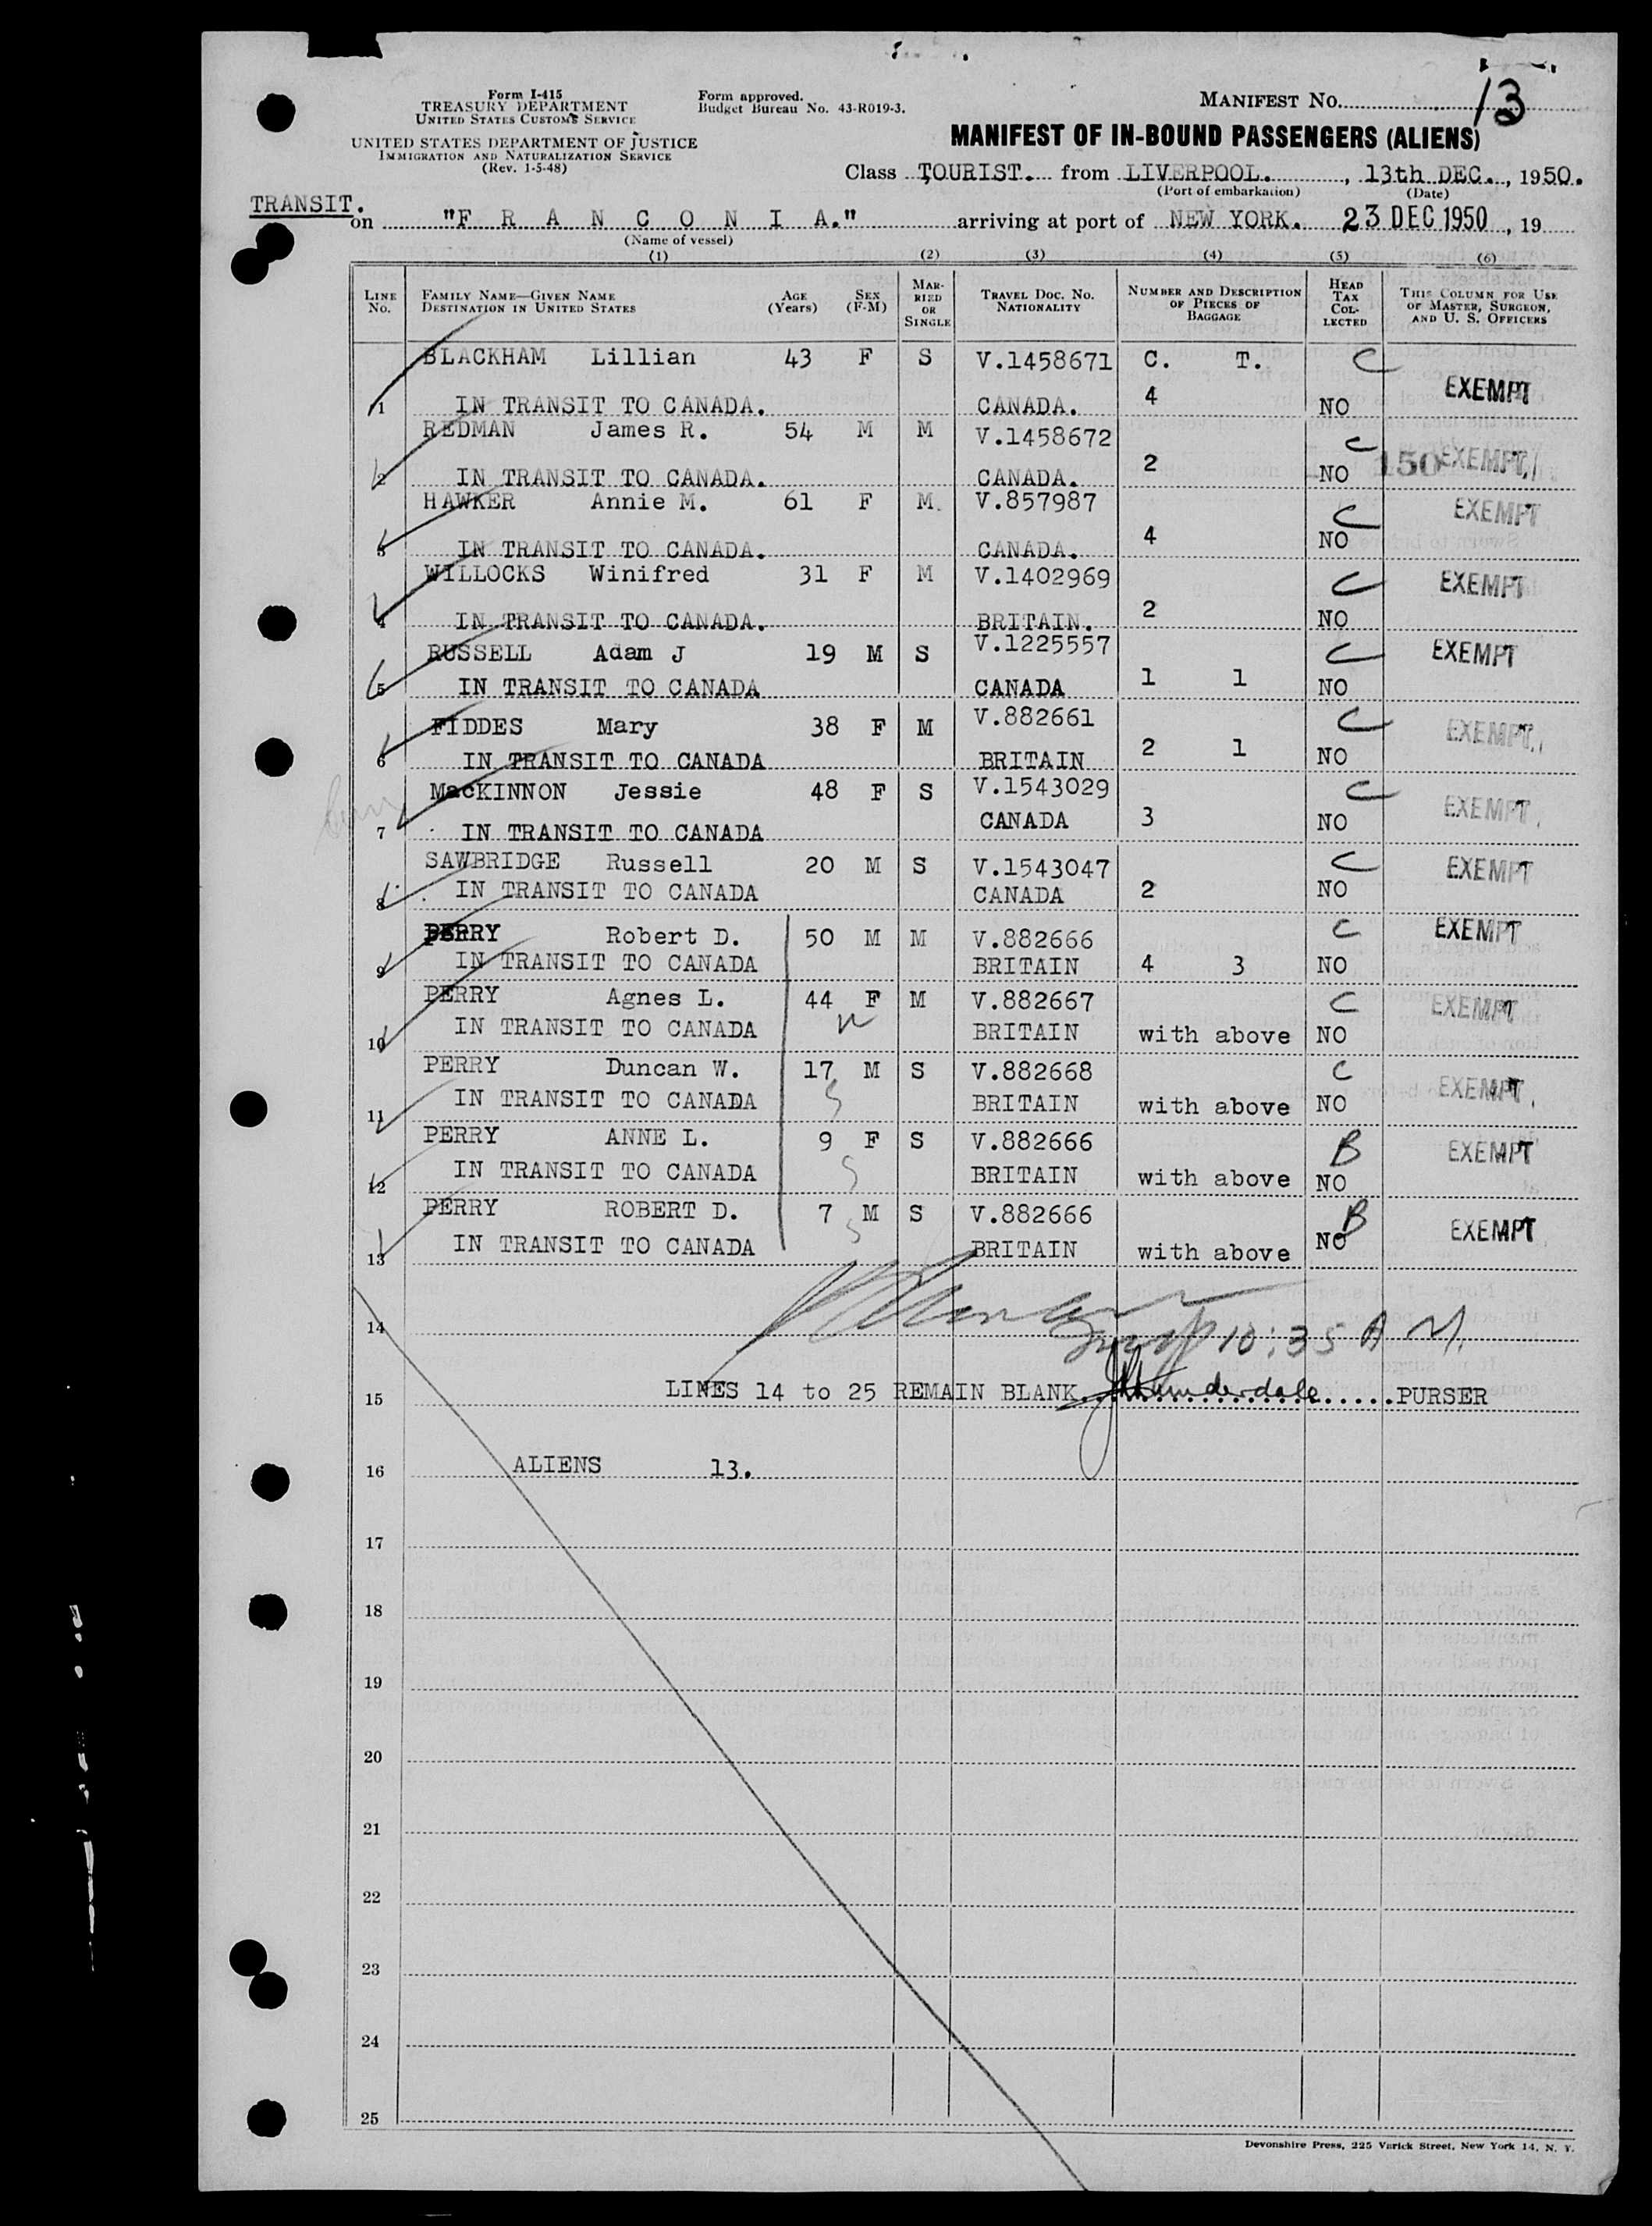 Form I-415
TREASURY DEPARTMENT
UNITED STATES CUSTOMS SERVICE
UNITED STATES DEPARTMENT OF JUSTICE
IMMIGRATION AND NATURALIZATION SERVICE
(Rev. 1-5-48)
Form approved.
Budget Bureau No. 43-R019-3.
MANIFEST NO. 13
MANIFEST OF IN-BOUND PASSENGERS (ALIENS)
Class TOURIST. from LIVERPOOL. , 13th DEC. , 1950.
(Port of embarkation) (Date)
TRANSIT.
on "F R A N C O N I A." arriving at port of NEW YORK. 23 DEC 1950 , 19
(Name of vessel)
(1) (2) (3) (4) (5) (6)
LINE No. FAMILY NAME—GIVEN NAME DESTINATION IN UNITED STATES AGE (Years) SEX (F-M) MARRIED OR SINGLE TRAVEL DOC. NO. NATIONALITY NUMBER AND DESCRIPTION OF PIECES OF BAGGAGE HEAD TAX COLLECTED THIS COLUMN FOR USE OF MASTER, SURGEON, AND U. S. OFFICERS
BLACKHAM Lillian 43 F S V.1458671 C. T. C EXEMPT
1 IN TRANSIT TO CANADA. CANADA. 4 NO
REDMAN James R. 54 M M V.1458672 C 150 EXEMPT
2 IN TRANSIT TO CANADA. CANADA. 2 NO
HAWKER Annie M. 61 F M. V.857987 C EXEMPT
3 IN TRANSIT TO CANADA. CANADA. 4 NO
WILLOCKS Winifred 31 F M V.1402969 C EXEMPT
4 IN TRANSIT TO CANADA. BRITAIN. 2 NO
RUSSELL Adam J 19 M S V.1225557 C EXEMPT
5 IN TRANSIT TO CANADA CANADA 1 1 NO
FIDDES Mary 38 F M V.882661 C EXEMPT
6 IN TRANSIT TO CANADA BRITAIN 2 1 NO
MacKINNON Jessie 48 F S V.1543029 C EXEMPT
7 IN TRANSIT TO CANADA CANADA 3 NO
SAWBRIDGE Russell 20 M S V.1543047 C EXEMPT
8 IN TRANSIT TO CANADA CANADA 2 NO
PERRY Robert D. 50 M M V.882666 C EXEMPT
9 IN TRANSIT TO CANADA BRITAIN 4 3 NO
PERRY Agnes L. 44 F M V.882667 C EXEMPT
10 IN TRANSIT TO CANADA BRITAIN with above NO
PERRY Duncan W. 17 M S V.882668 C EXEMPT
11 IN TRANSIT TO CANADA BRITAIN with above NO
PERRY ANNE L. 9 F S V.882666 B EXEMPT
12 IN TRANSIT TO CANADA BRITAIN with above NO
PERRY ROBERT D. 7 M S V.882666 B EXEMPT
13 IN TRANSIT TO CANADA BRITAIN with above NO
14 10:35 A M.
15 LINES 14 to 25 REMAIN BLANK. PURSER
16 ALIENS 13.
17
18
19
20
21
22
23
24
25
Devonshire Press, 225 Varick Street, New York 14, N. Y.